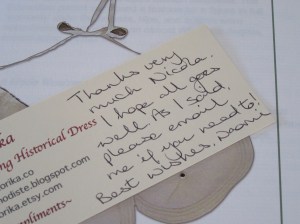 Thanks very
much Nicola.
I hope all goes
well. As I said,
please email
me if you need to!
Best wishes, Naomi
ka
ng Historical Dress
orika.co
nodiste.blogspot.com
orika.etsy.com
mpliments~